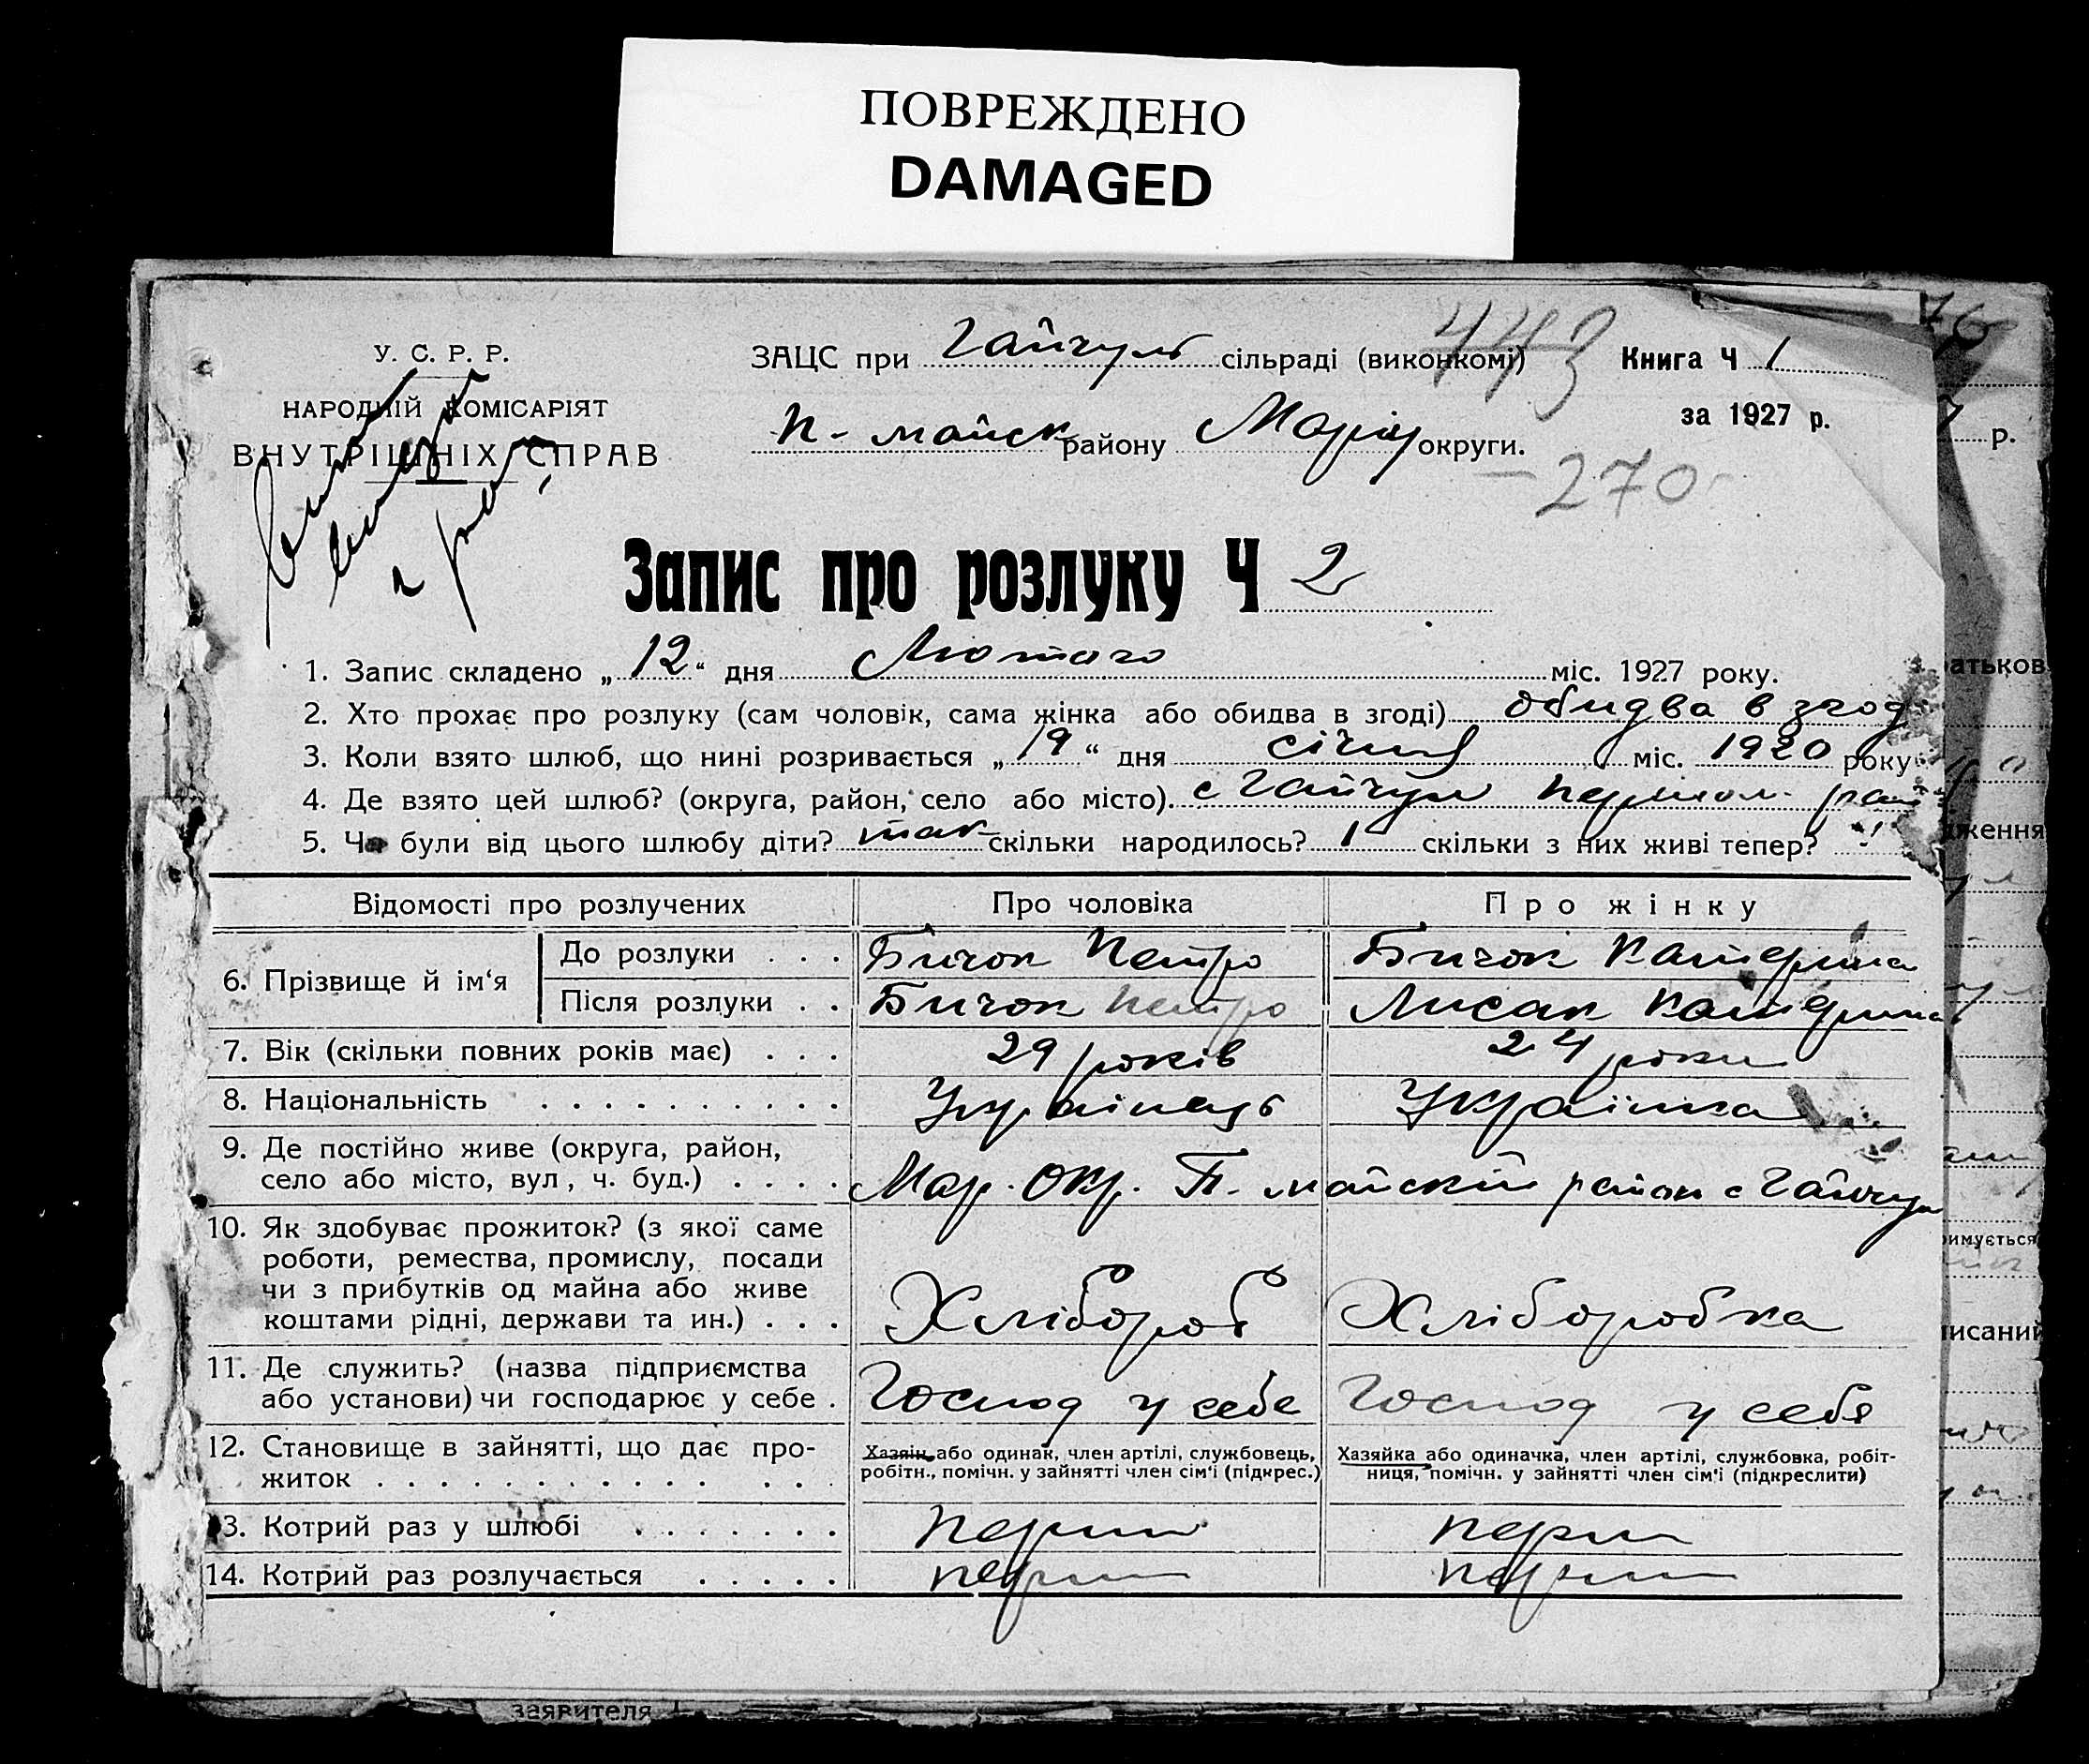 ПОВРЕЖДЕНО
DAMAGED
У. С. Р. Р.
НАРОДНІЙ КОМІСАРІЯТ
ВНУТРІШНІХ СПРАВ
ЗАЦС при Гайчуль сільраді (виконкомі)
443
Книга Ч 1
за 1927 р.
П- майск району Маріу округи.
-270-
Запис про розлуку Ч 2
1. Запис складено „12“ дня Лютого міс. 1927 року.
2. Хто прохає про розлуку (сам чоловік, сама жінка або обидва в згоді) обидва в згод
3. Коли взято шлюб, що нині розривається „19“ дня січня міс. 1920 року
4. Де взято цей шлюб? (округа, район, село або місто) с Гайчул
5. Чи були від цього шлюбу діти? так скільки народилось? 1 скільки з них живі тепер? 1
Відомості про розлучених Про чоловіка Про жінку
6. Прізвище й ім‘я
До розлуки . . . Бичок Петро Бичок Катерина
Після розлуки . . Бичок Петро Лисак Катерина
7. Вік (скільки повних років має) . . . 29 років 24 роки
8. Національність . . . . . . . . . . Українець Українка
9. Де постійно живе (округа, район,
село або місто, вул, ч. буд.) . . . . Мар. Окр. П. майский район с Гайчул
10. Як здобуває прожиток? (з якої саме
роботи, ремества, промислу, посади
чи з прибутків од майна або живе
коштами рідні, держави та ин.) . . . Хлібороб Хліборобка
11. Де служить? (назва підприємства
або установи) чи господарює у себе . Господ у себе Господ у себя
12. Становище в зайнятті, що дає про-
житок . . . . . . . . . . . .
Хазяїн або одинак, член артілі, службовець,
робітн., помічн. у зайнятті член сім‘ї (підкрес.)
Хазяйка або одиначка, член артілі, службовка, робіт-
ниця, помічн. у зайнятті член сім‘ї (підкреслити)
13. Котрий раз у шлюбі . . . . . . . перши перш
14. Котрий раз розлучається . . . . . перш перш
76
р.
атьков
ження
имується
писаний
заявителя